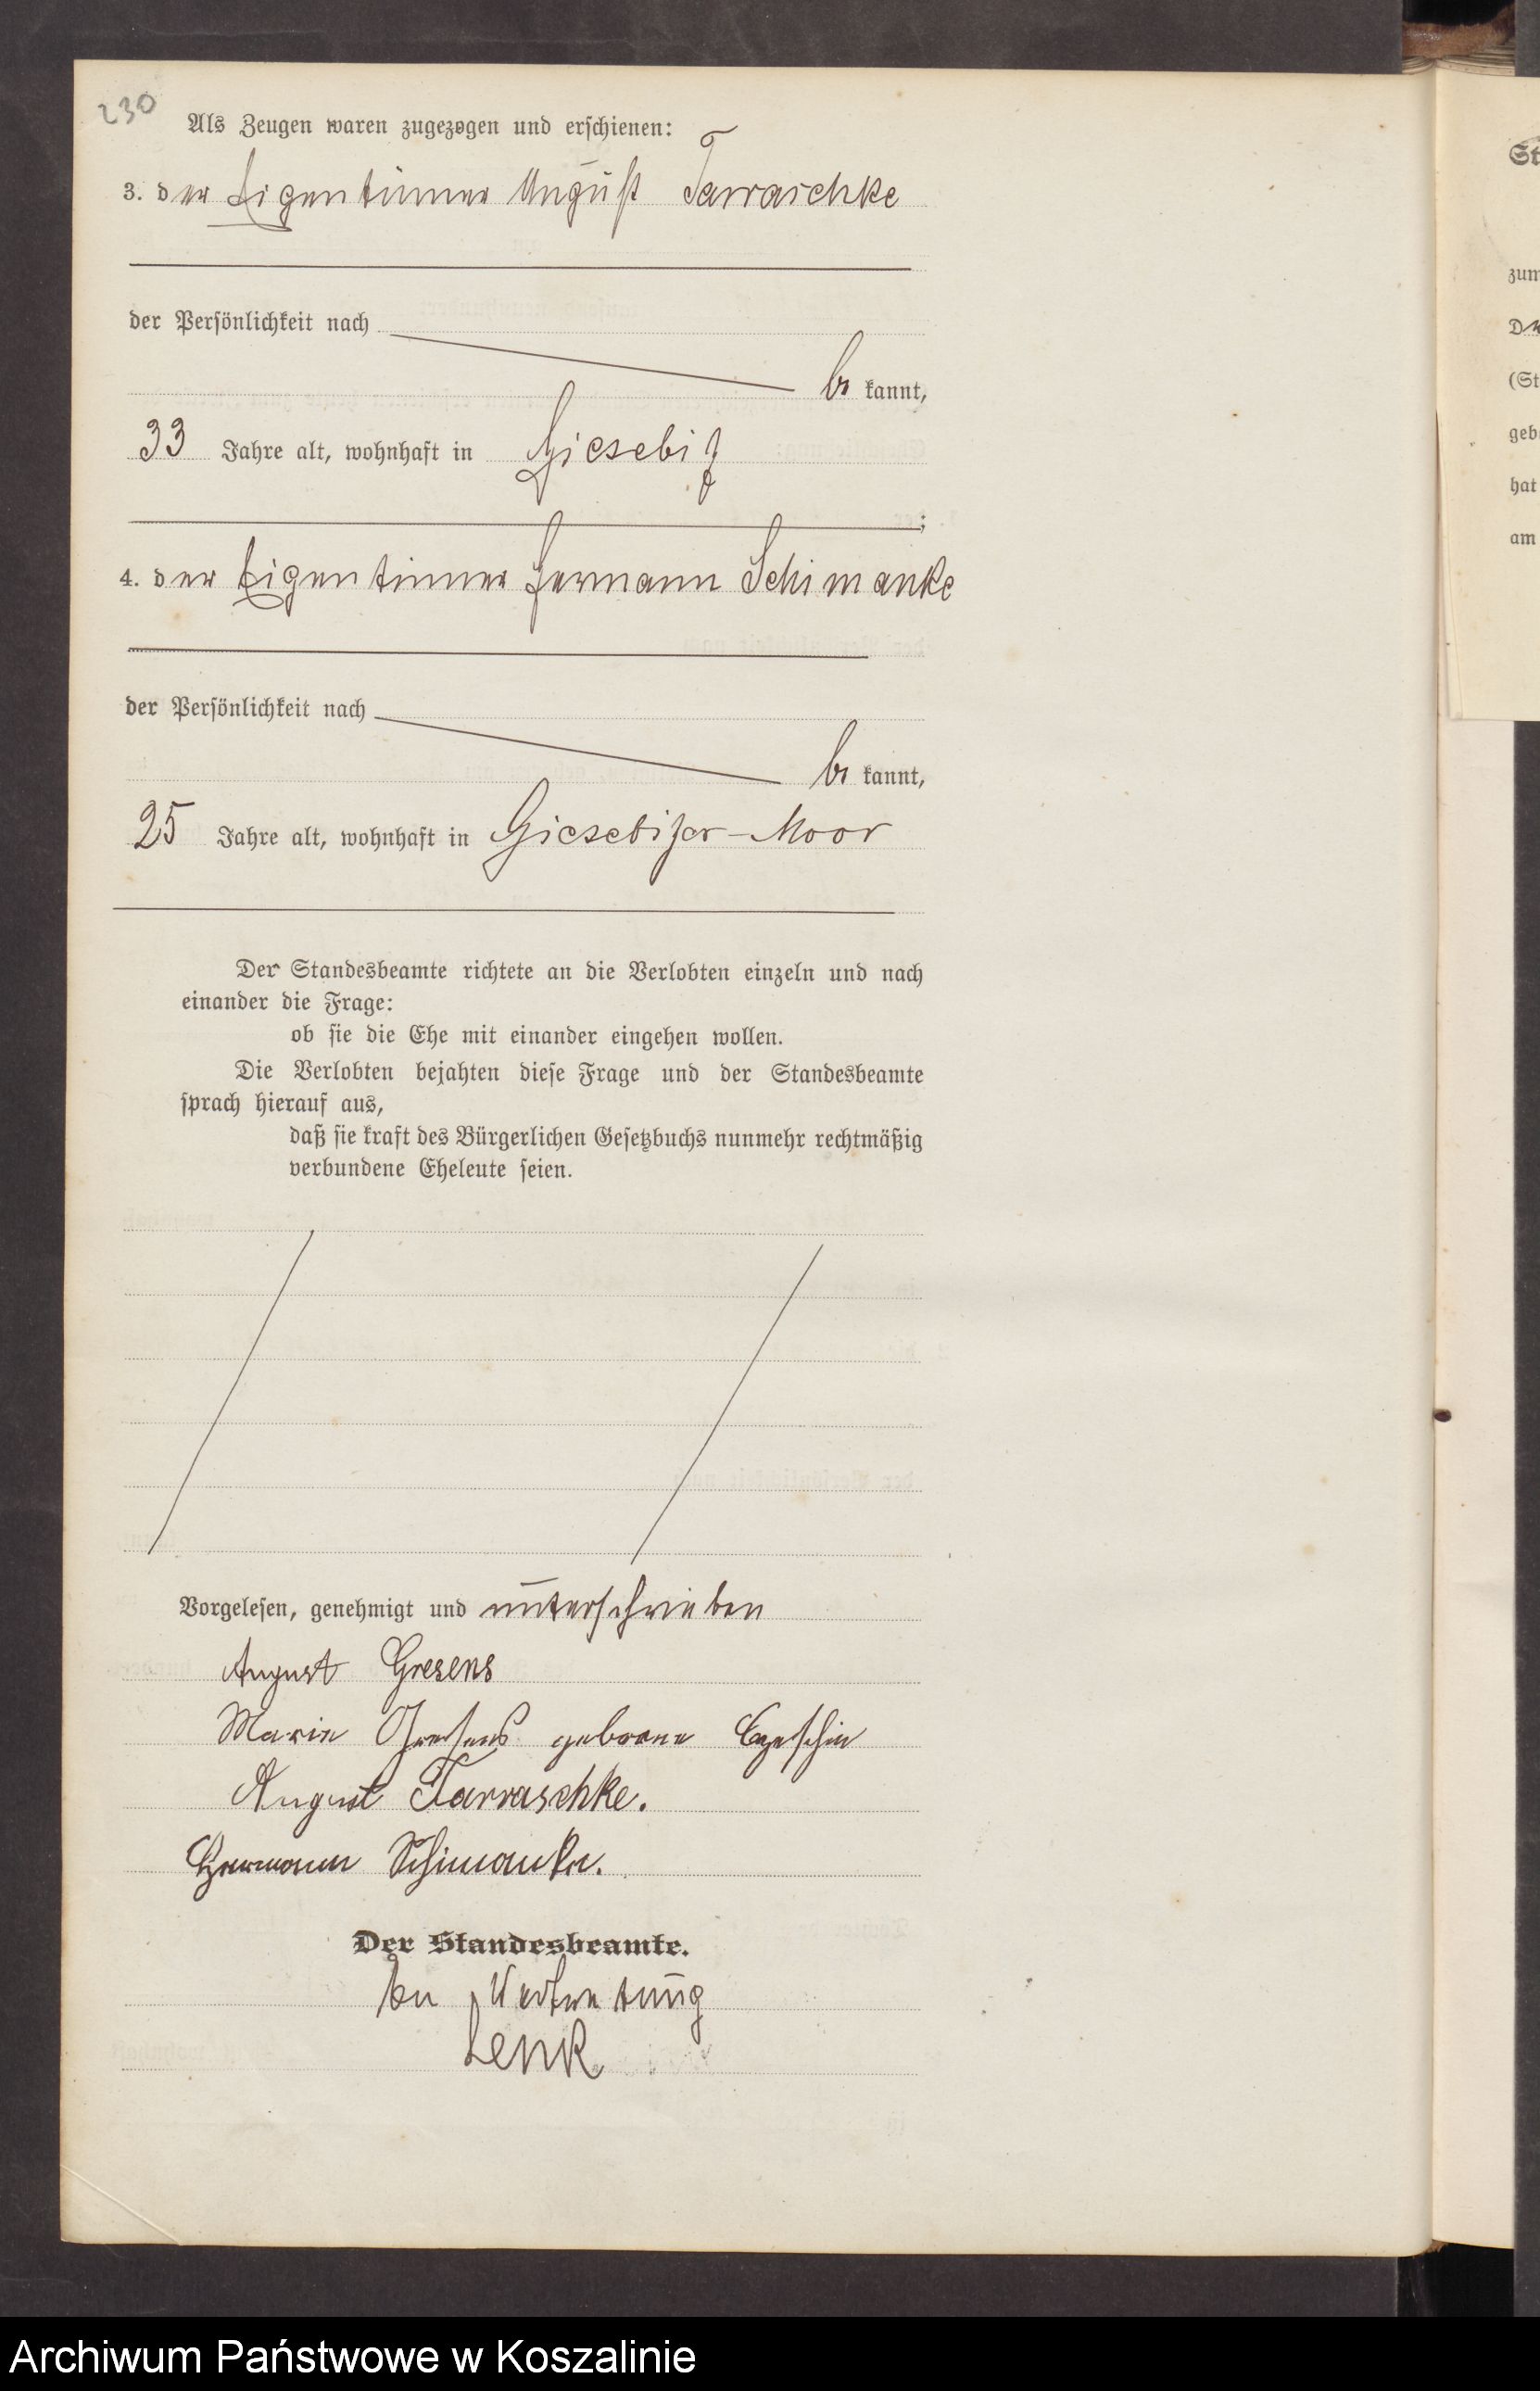 230
Als Zeugen waren zugezogen und erschienen:
3. der Eigentümer August Tarraschke
der Persönlichkeit nach
be kannt,
33 Jahre alt, wohnhaft in Giesebitz
;
4. der Eigentümer Hermann Schimanke
der Persönlichkeit nach
be kannt,
25 Jahre alt, wohnhaft in Giesebitzer-Moor
Der Standesbeamte richtete an die Verlobten einzeln und nach
einander die Frage:
ob sie die Ehe mit einander eingehen wollen.
Die Verlobten bejahten diese Frage und der Standesbeamte
sprach hierauf aus,
daß sie kraft des Bürgerlichen Gesetzbuchs nunmehr rechtmäßig
verbundene Eheleute seien.
Vorgelesen, genehmigt und unterschrieben
August Gresens
Marie Gresens geborne
August Tarraschke.
Hermann Schimanke.
Der Standesbeamte.
In Vertretung
Lenk
St
zum
De
(St
geb
hat
am
Archiwum Państwowe w Koszalinie